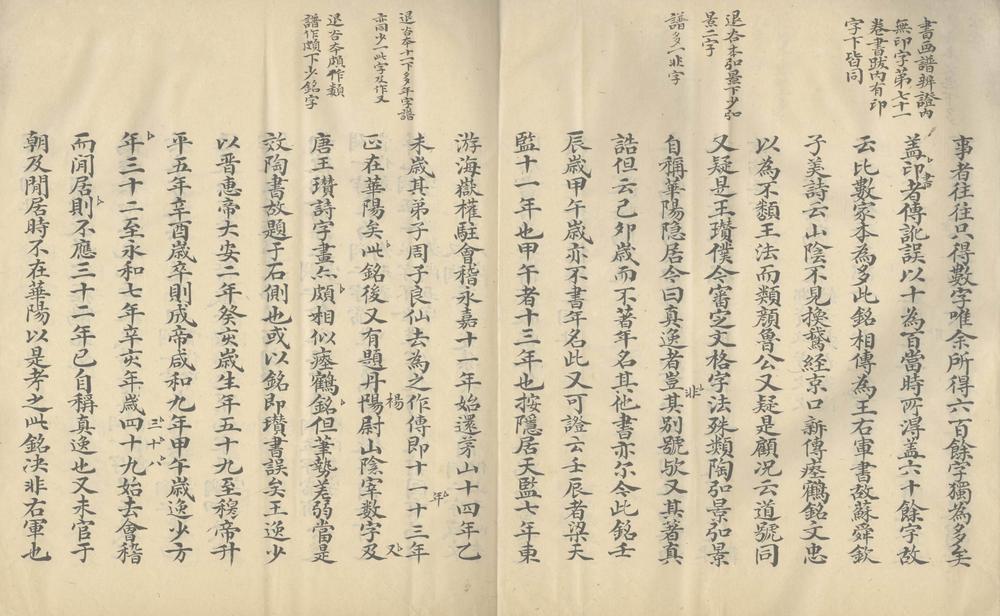 書画譜辨證內
無印字第七十一
卷書跋內有印
字下皆同
退谷本弘景下少弘
景二字
譜多一非字
事者往往只得數字唯余所得六百餘字獨為多矣
蓋印書者傳訛誤以十為百當時所得蓋六十餘字故
云比數家本為多此銘相傳為王右軍書故蘇舜欽
子美詩云山陰不見換鵞経京口新傳瘞鶴銘文忠
以為不類王法而類顏魯公又疑是顧況云道號同
又疑是王瓚僕今審定文格字法殊類陶弘景弘景
自稱華陽隐居今曰真逸者豈其別號歟又其著真
非
誥但云己夘歲而不著年名其他書亦尔今此銘壬
辰歲甲午歲亦不書年名此又可證云壬辰者梁天
監十一年也甲午者十三年也按隐居天監七年東
退谷本十一下多年字譜
亦同少一此字及作又
退谷本頗作類
譜作頗下少銘字
游海嶽權駐會稽永嘉十一年始還茅山十四年乙
未歲其弟子周子良仙去為之作傳即十一十三年
年
正在華陽矣此銘後又有題丹陽尉山陰宰數字及
楊
又
唐王瓚詩字畫亦頗相似瘞鶴銘但筆勢差弱當是
效陶書故題于石側也或以銘即瓚書誤矣王逸少
以晋惠帝大安二年癸亥歲生年五十九至穆帝升
平五年辛酉歲卒則成帝咸和九年甲午歲逸少方
年三十二至永和七年辛亥年歲四十九始去會稽
三十八
而閒居則不應三十二年已自稱真逸也又未官于
朝及閒居時不在華陽以是考之此銘决非右軍也